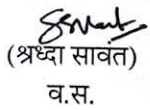 (श्रध्दा सावंत)
व.स.